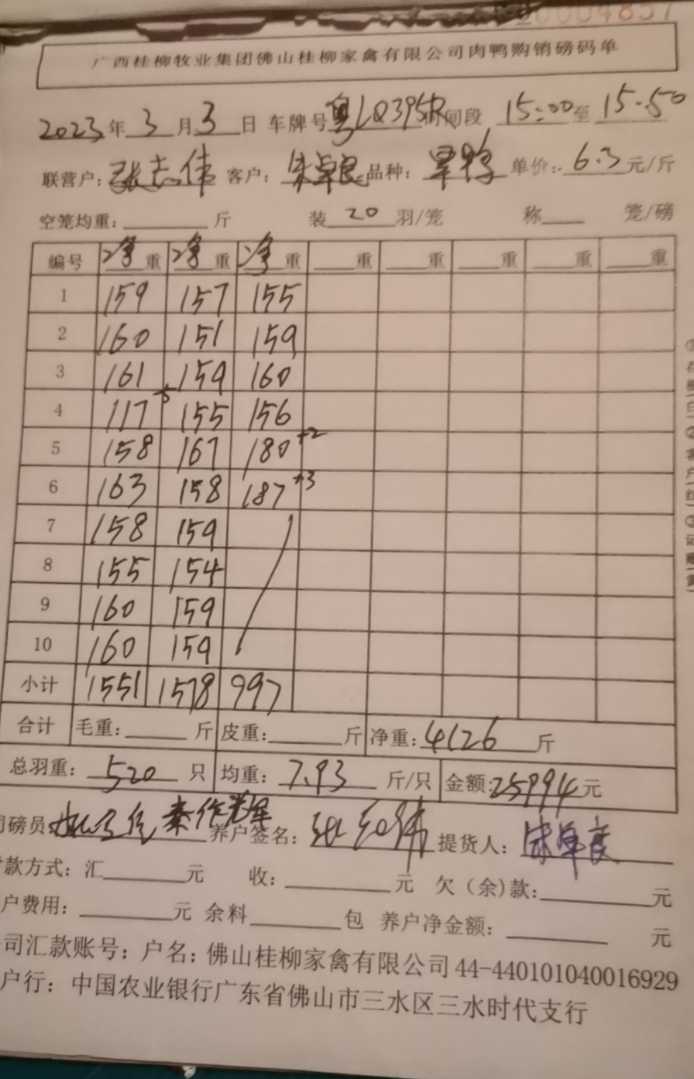 0004857
广西桂柳牧业集团佛山桂柳家禽有限公司肉鸭购销磅码单
2023年3月3日 车牌号粤LQ395R 时间段 15:00至15:50
联营户:张志伟 客户: 朱卓良 品种: 单价: 6.3元/斤
空笼均重: 斤 装 20 羽/笼 称 笼/磅
编号 净重 净重 净重 重 重 重 重 重
1 159 157 155
2 160 151 159
3 161 159 160
4 117-5 155 156
5 158 167 180+2
6 163 158 187+3
7 158 159
8 155 154
9 160 159
10 160 159
小计 1551 1578 997
合计 毛重: 斤 皮重: 斤 净重: 4126 斤
总羽重: 520 只 均重: 7.93 斤/只 金额: 25994元
磅员: 养户签名: 提货人: 朱卓良
款方式: 汇 元 收: 元 欠(余)款: 元
户费用: 元 余料 包 养户净金额: 元
司汇款账号: 户名: 佛山桂柳家禽有限公司 44-440101040016929
户行: 中国农业银行广东省佛山市三水区三水时代支行